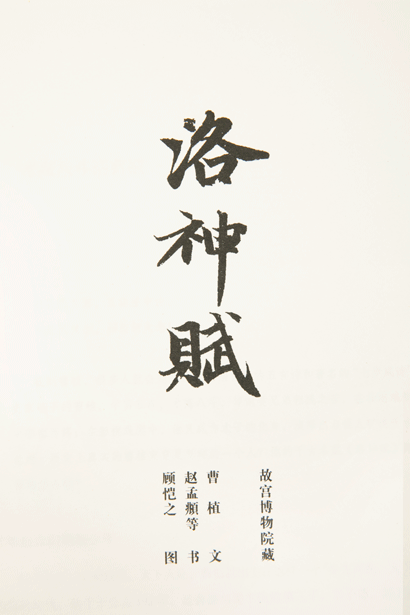 洛神賦
故宫博物院藏
曹植 文
赵孟頫等 书
顾恺之 图